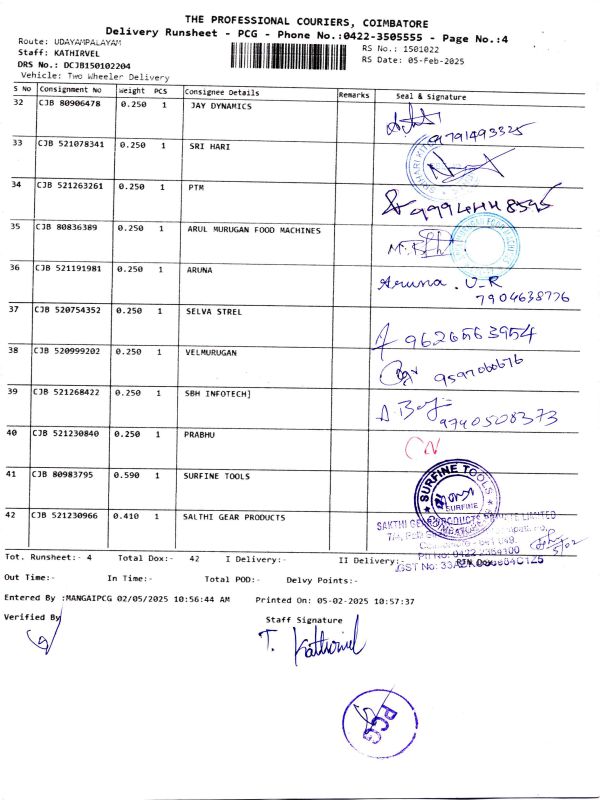 THE PROFESSIONAL COURIERS, COIMBATORE
Delivery Runsheet - PCG - Phone No.:0422-3505555 - Page No.:4
Route: UDAYAMPALAYAM
RS No.: 1501022
Staff: KATHIRVEL
RS Date: 05-Feb-2025
DRS No.: DCJB150102204
Vehicle: Two Wheeler Delivery
S No Consignment No Weight PCS Consignee Details Remarks Seal & Signature
32 CJB 80906478 0.250 1 JAY DYNAMICS
9791493325
33 CJB 521078341 0.250 1 SRI HARI
34 CJB 521263261 0.250 1 PTM
35 CJB 80836389 0.250 1 ARUL MURUGAN FOOD MACHINES
36 CJB 521191981 0.250 1 ARUNA Aruna . U-R
7904638776
37 CJB 520754352 0.250 1 SELVA STREL
9626563954
38 CJB 520999202 0.250 1 VELMURUGAN
9597060676
39 CJB 521268422 0.250 1 SBH INFOTECH]
9740508373
40 CJB 521230840 0.250 1 PRABHU
41 CJB 80983795 0.590 1 SURFINE TOOLS
SURFINE TOOLS
SURFINE
COIMBATORE
42 CJB 521230966 0.410 1 SALTHI GEAR PRODUCTS
SAKTHI GEAR PRODUCTS PRIVATE LIMITED
5/02
Tot. Runsheet:- 4 Total Dox:- 42 I Delivery:- II Delivery:-
Out Time:- In Time:- Total POD:- Delvy Points:-
Entered By :MANGAIPCG 02/05/2025 10:56:44 AM Printed On: 05-02-2025 10:57:37
Verified By Staff Signature
T. Kathirvel
PCG